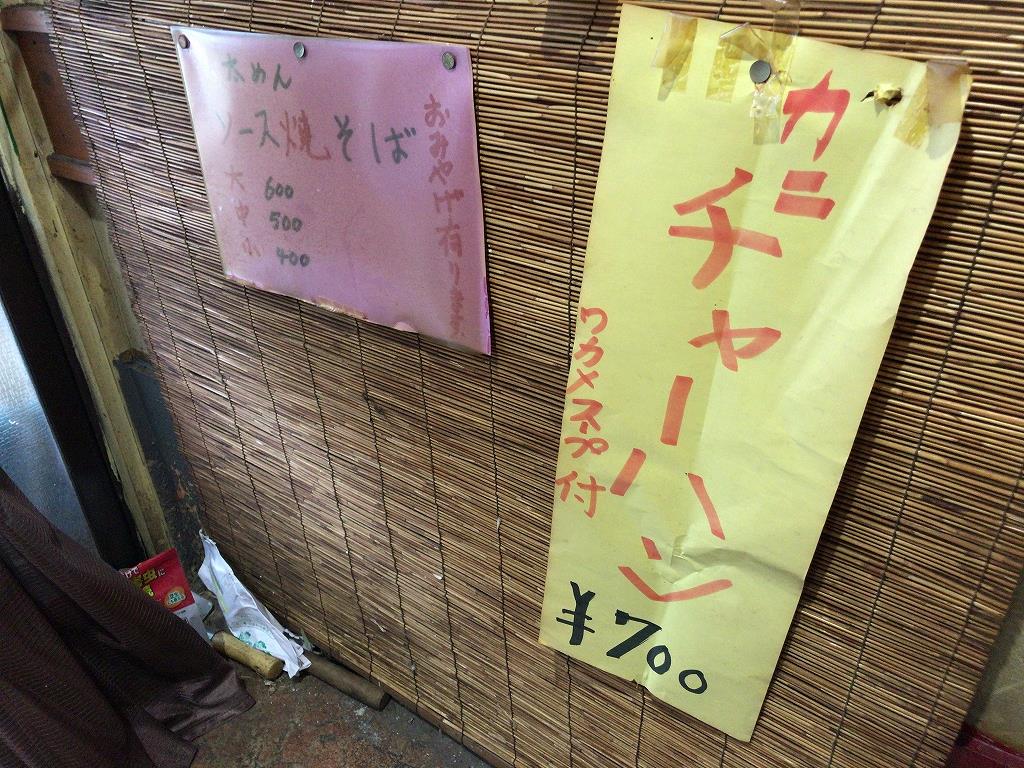 太めん
ソース焼そば
大 600
中 500
小 400
おみやげ有ります
カニ
チャーハン
ワカメスープ付
¥700